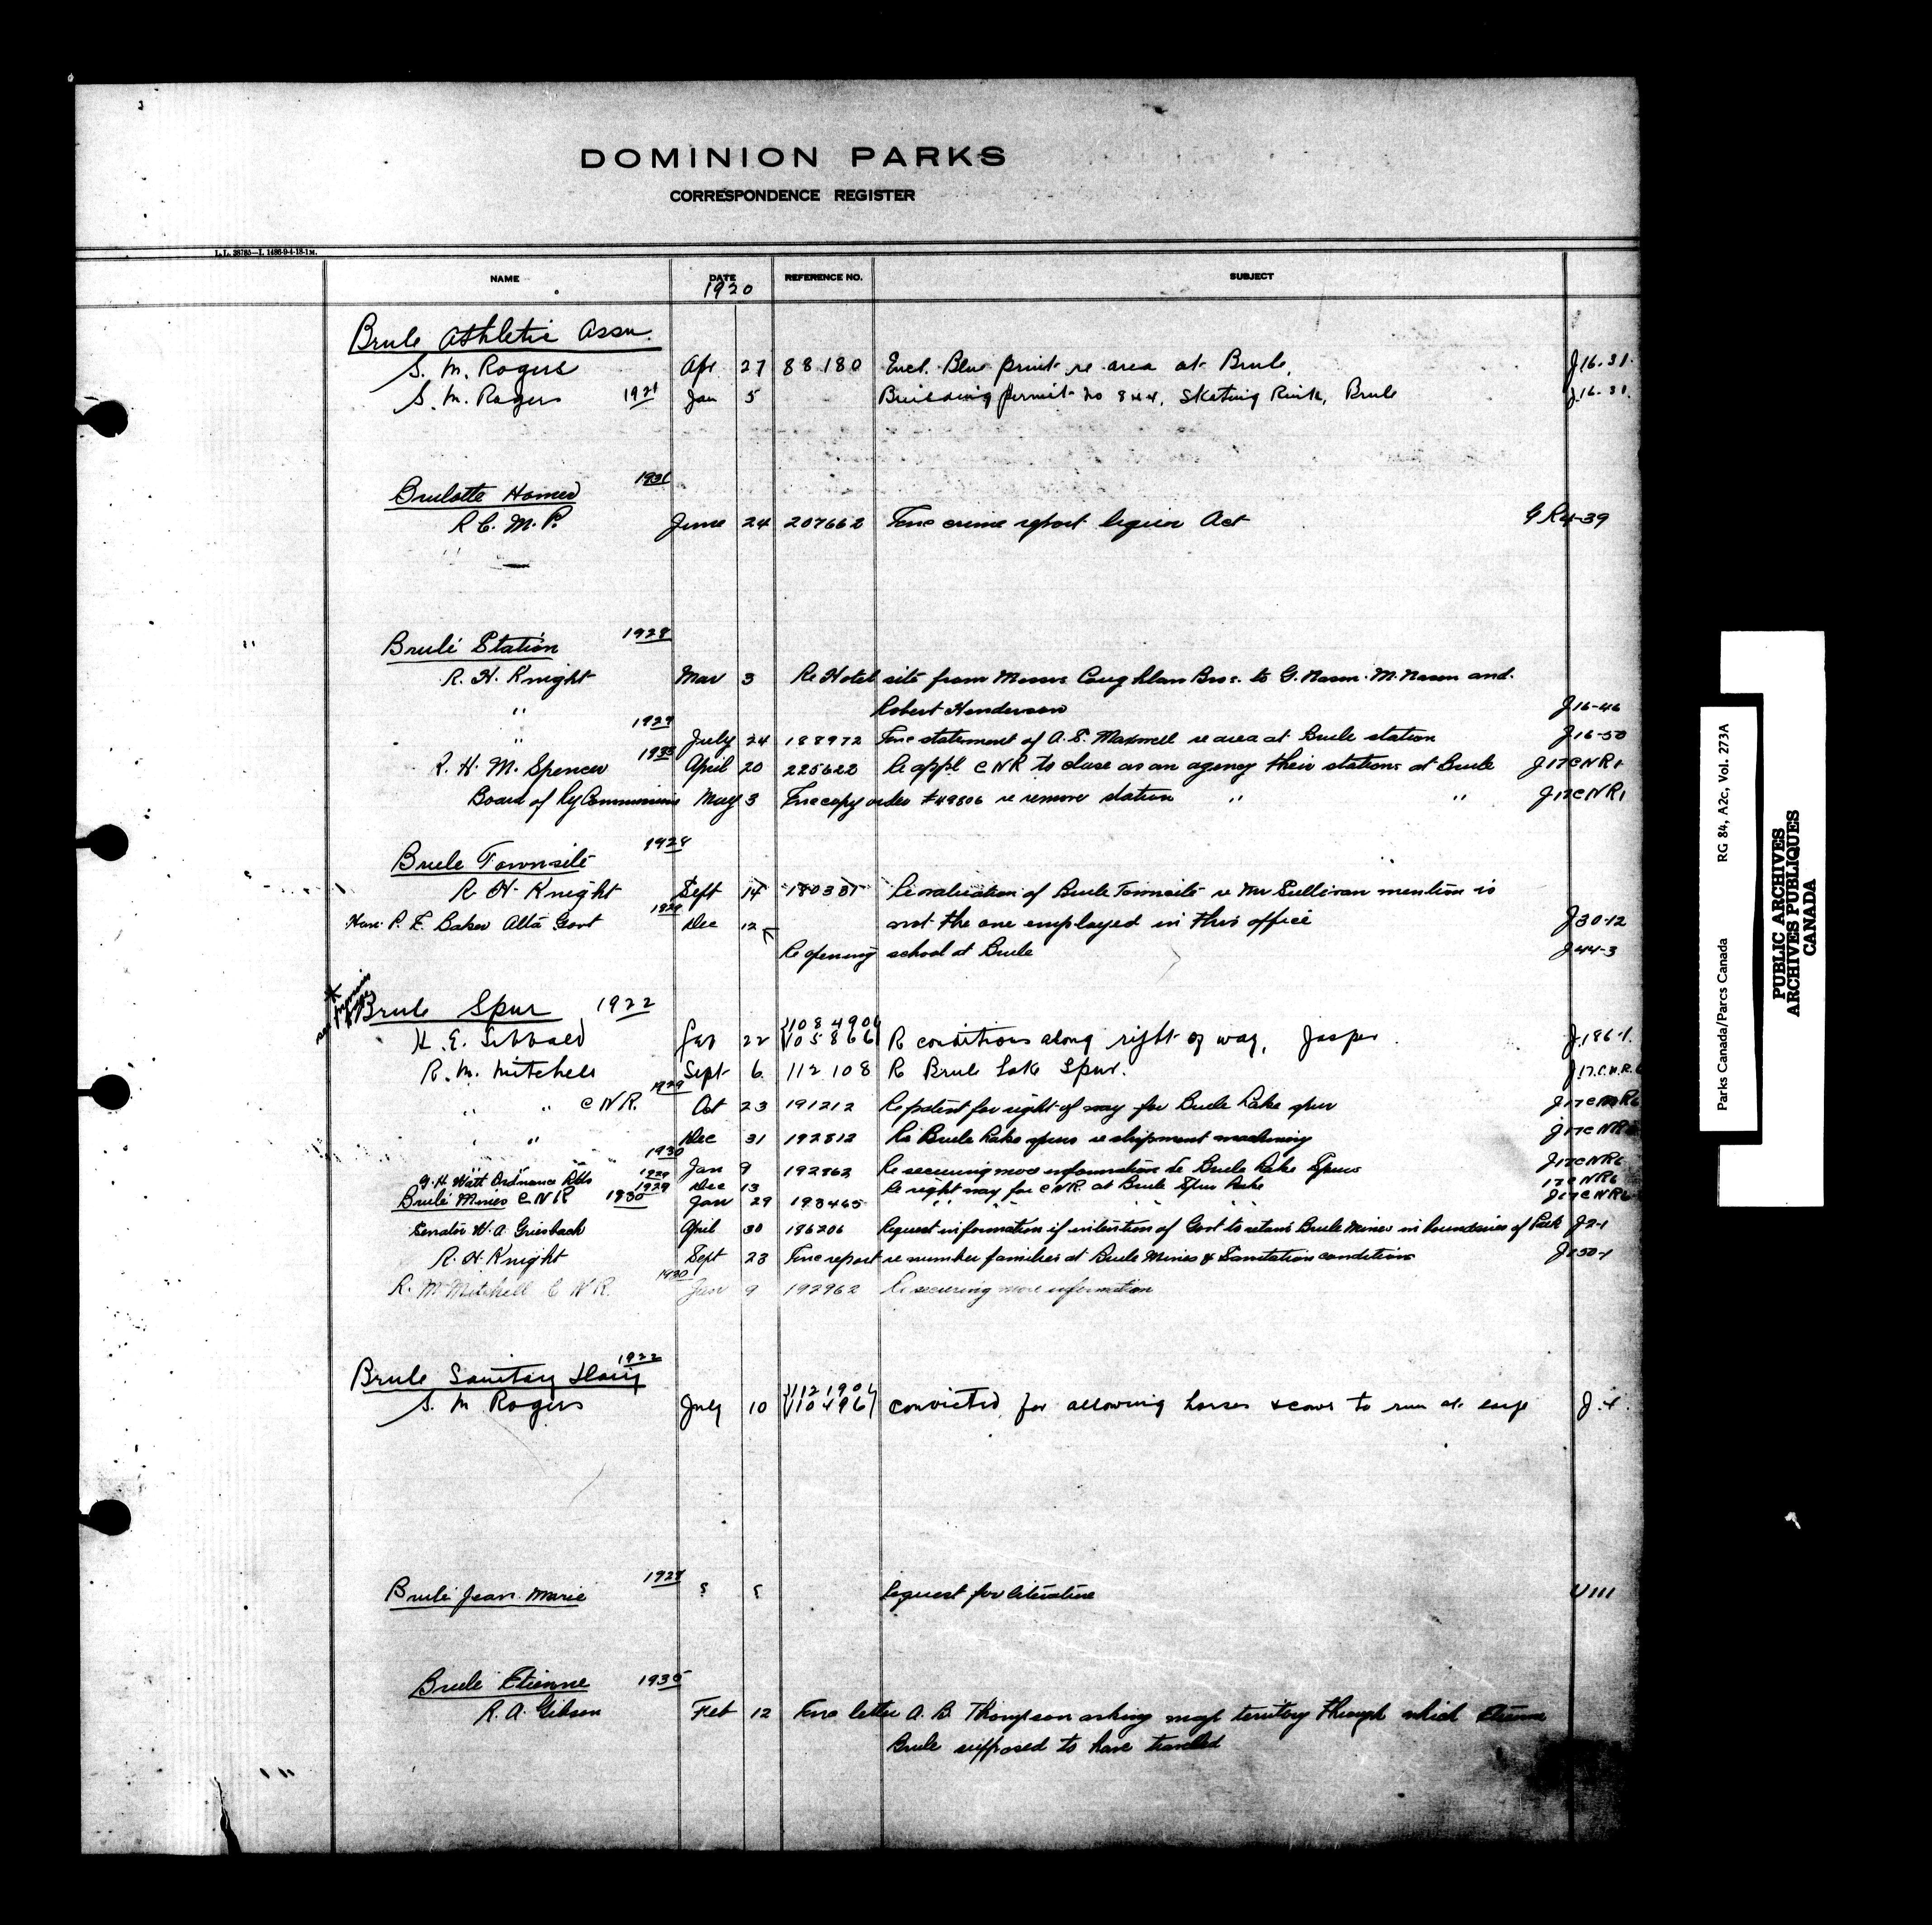 DOMINION PARKS
CORRESPONDENCE REGISTER
L.L. 38785—I. 1486-9-4-18-1M.
NAME DATE REFERENCE NO. SUBJECT
1920
Brule Athletic Assn.
S. M. Rogers Apr 27 88180 Encl. Blue print re area at Brule, J16-31.
S. M. Rogers 1921 Jan 5 Building permit No 844, Skating Rink, Brule J.16-31.
Brulotte Homer 1931
R C. M. P. June 24 207662 Enc crime report liquor Act GR4-39
Brulé Station 1928
R. H. Knight Mar 3 Re Hotel site from Messrs Coughlan Bros. to G. Nason. M. Nason and
" Robert Henderson J16-46
1929
" July 24 188972 Enc statement of A. S. Maxwell re area at Brule station J16-50
1933
R. H. M. Spencer April 20 225622 Re appl CNR to close as an agency their station at Brule J17CNR1
Board of Ry Commissions May 3 Enc copy order #49806 re remove station " " J17CNR1
Brule Townsite 1928
R H Knight Sept 14 180381 Re valuation of Brule Townsite re Mr Sullivan mention is
1929
Hon. P. E. Baker Alta Govt Dec 12 not the one employed in this office J30-12
Re opening school at Brule J44-3
Brule Spur 1922
H. E. Sibbald Jan 22 {108490 105866} R conditions along right of way, Jasper. J.186-1.
R. M. Mitchell Sept 6 112108 R Brule Lake Spur. J17.C.N.R.6
1929
" " CNR. Oct 23 191212 Re patent for right of way for Brule Lake spur J17CNR6
" " Dec 31 192812 Re Brule Lake spurs re shipment machinery J17CNR6
1930
" " Jan 9 192962 Re securing more information re Brule Lake Spurs J17CNR6
G. H. Watt Ordnance Atts 1929 Dec 13 Re right way for CNR. at Brule Spur Lake 17CNR6
1929
Brulé Mines CNR 1930 Jan 29 193465 " " " " J17CNR6
Senator W. A. Griesbach April 30 186206 Request information if intention of Govt to retain Brule Mines in boundaries of Park J2-1
R. H. Knight Sept 23 Enc report re number families at Brule Mines & Sanitation conditions J150-1
1930
R. M. Mitchell C N R. Jan 9 192962 Re securing more information
Brule Sanitary Dairy 1922
S. M Rogers July 10 {112190 110496} convicted for allowing horses & cows to run at large J.4.
Brulé Jean Marie 1928 ? ? Request for literature U111
Brulé Etienne 1935
R. A. Gibson Feb 12 Enc letter A. B. Thompson asking map territory through which Etienne
Brule supposed to have travelled
Parks Canada/Parcs Canada RG 84, A2c, Vol. 273A
PUBLIC ARCHIVES
ARCHIVES PUBLIQUES
CANADA